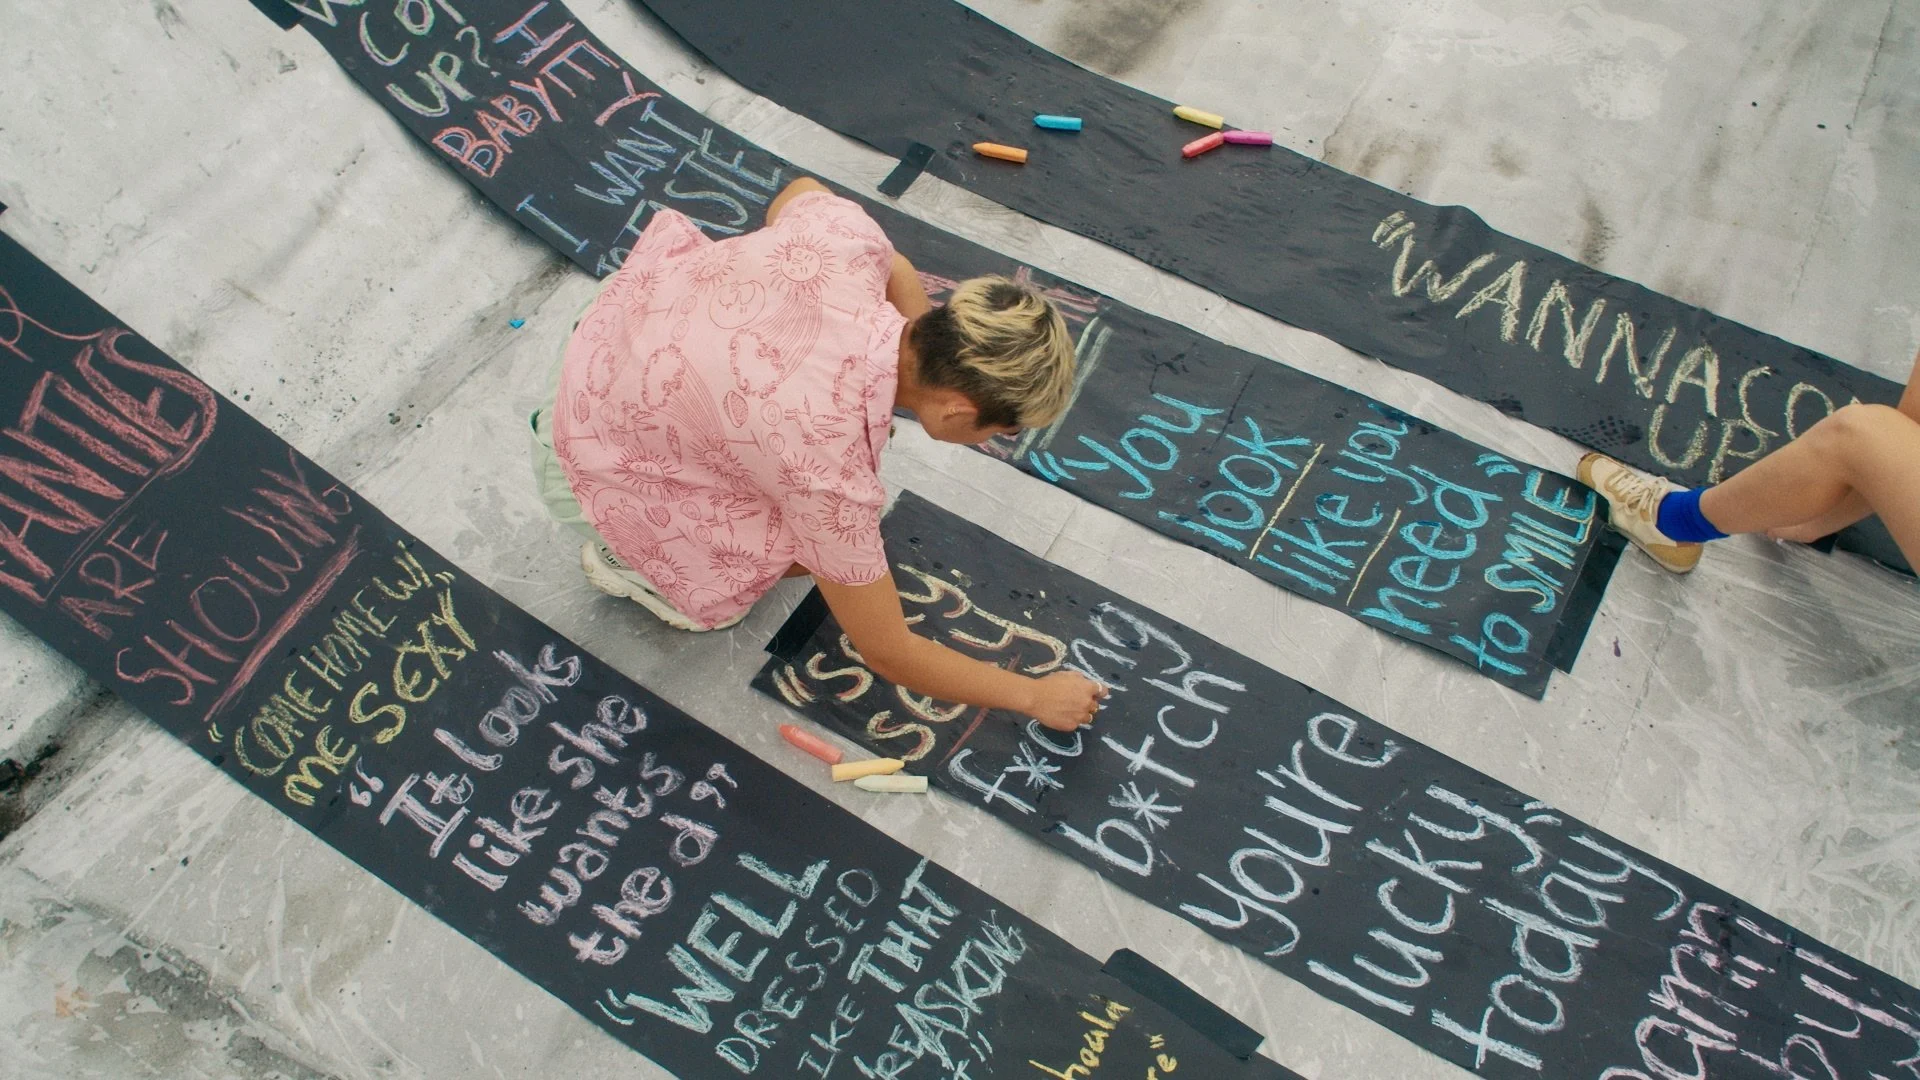 COM
UP?
HEY
BABY
I WANT
TO TASTE
"WANNA CO
UP
"You
look
like you
need"
to SMILE
PANTIES
ARE
SHOWING
"COME HOME W/
ME SEXY"
"It looks
like she
wants
the d"
"WELL
DRESSED
LIKE THAT
RE ASKING
IT"
"Sexy
sexy"
f*cking
b*tch
you're
lucky
today"
Damn